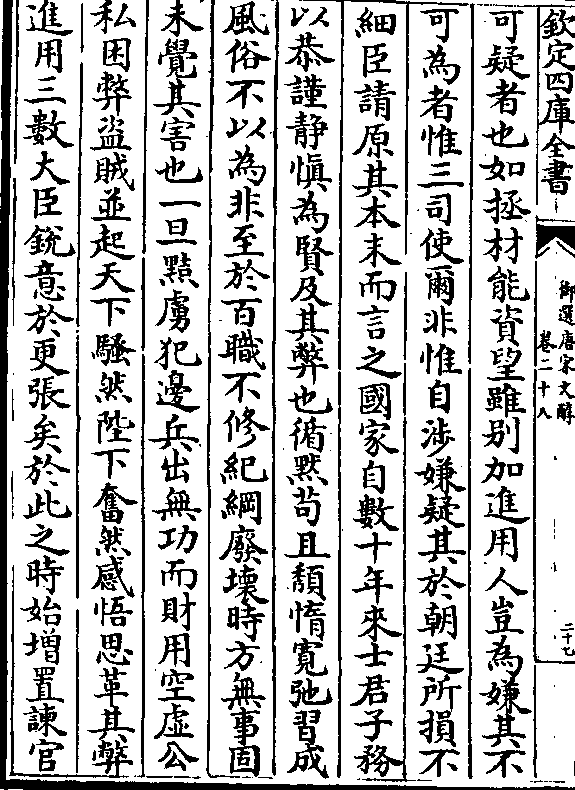 欽定四庫全書
御選唐宋文醇
卷二十八
二十七
可疑者也如拯材能資望雖别加進用人豈為嫌其不
可為者惟三司使爾非惟自涉嫌疑其於朝廷所損不
細臣請原其本末而言之國家自數十年來士君子務
以恭謹静慎為賢及其弊也循黙苟且頽惰寛弛習成
風俗不以為非至於百職不修紀綱廢壊時方無事固
未覺其害也一旦黠虜犯邊兵出無功而財用空虚公
私困弊盗賊並起天下騷然陛下奮然感悟思革其弊
進用三數大臣銳意於更張矣於此之時始增置諫官